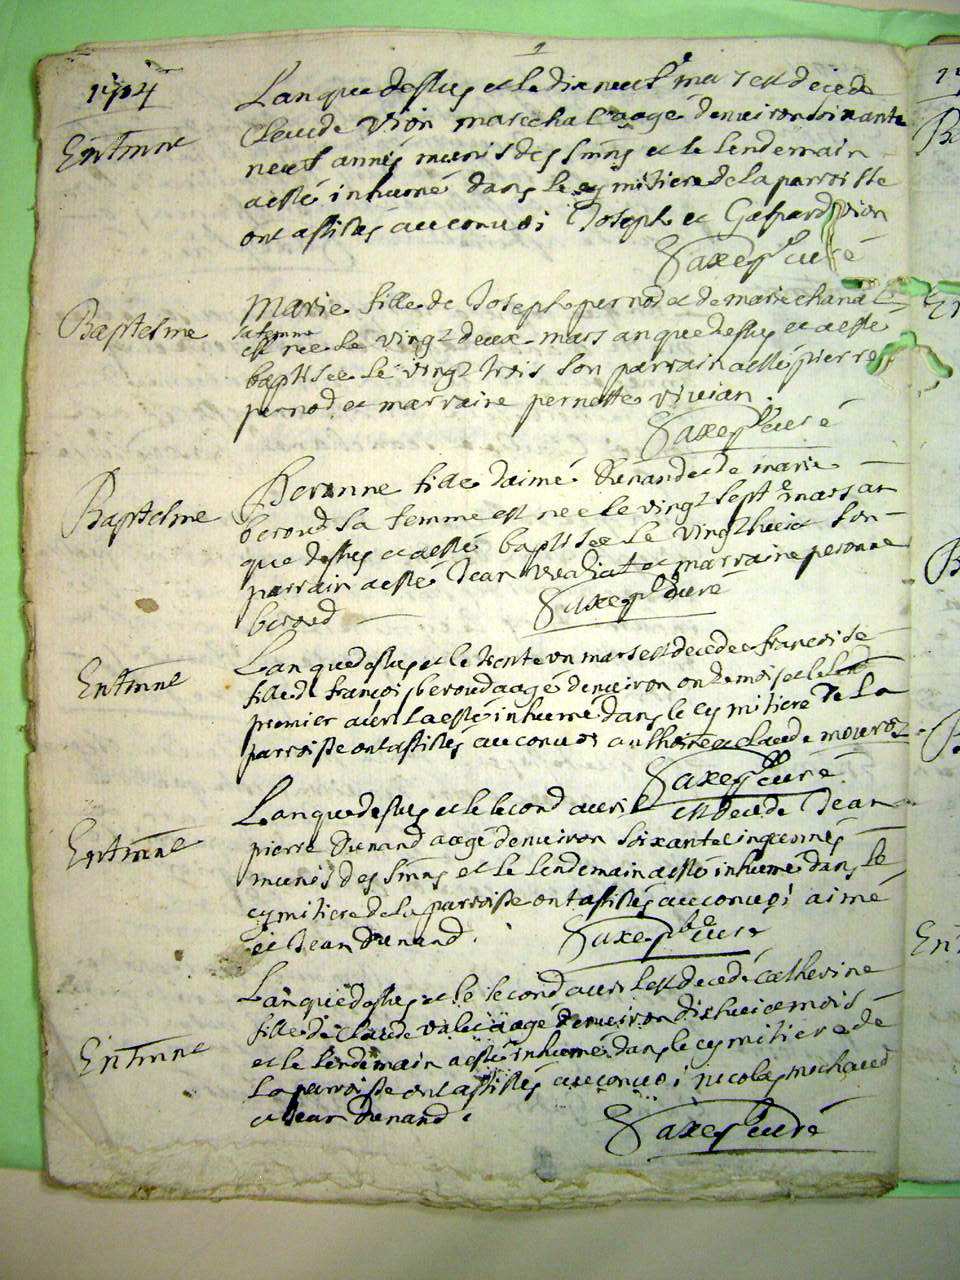 1704
Entmnt
Lan que dessus et le dixneuf mars est decede
Claude vion marechal aagé denuiron soixante
neuf années munis des Smns et le lendemain
a esté inhumé dans le cymitiere de la parroisse
ont assistés au conuoi Joseph et Gaspard vion
Saxe plb curé
Baptesme
Marie fille de Joseph pernod et de marie chanal
sa femme
est née le vingt deux mars an que dessus et a esté
baptisée le vingt trois son parrain a esté pierre
pernod et marraine pernette vivian.
Saxe plb curé
Baptesme
Peronne fille daimé Dunand et de marie
beroud sa femme est née le vingt septe mars an
que dessus et a esté baptisée le vingt huict son
parrain a esté Jean et marraine peronne
beroud
Saxe plb curé
Entmnt
Lan que dessus et le trente un mars est decedee francoise
fille de francois beroud aagé denuiron onze mois et le
premier auril a esté inhumé dans le cymitiere de la
parroisse ont assistés au conuoi anthoine et claude
Saxe plb curé
Entmnt
Lan que dessus et le second auril est decede Jean
pierre Dunand aagé denuiron soixante cinq années
munis des Smns et le lendemain a esté inhumé dans le
cymitiere de la parroisse ont assistés au conuoi aimé
et Jean Dunand.
Saxe plb curé
Entmnt
Lan que dessus et le second auril est decedé catherine
fille de Claude aagé denuiron dixhuict mois
et le lendemain a esté inhumé dans le cymitiere de
la parroisse ont assistés au conuoi nicolas michaud
et Jean Dunand.
Saxe plb curé